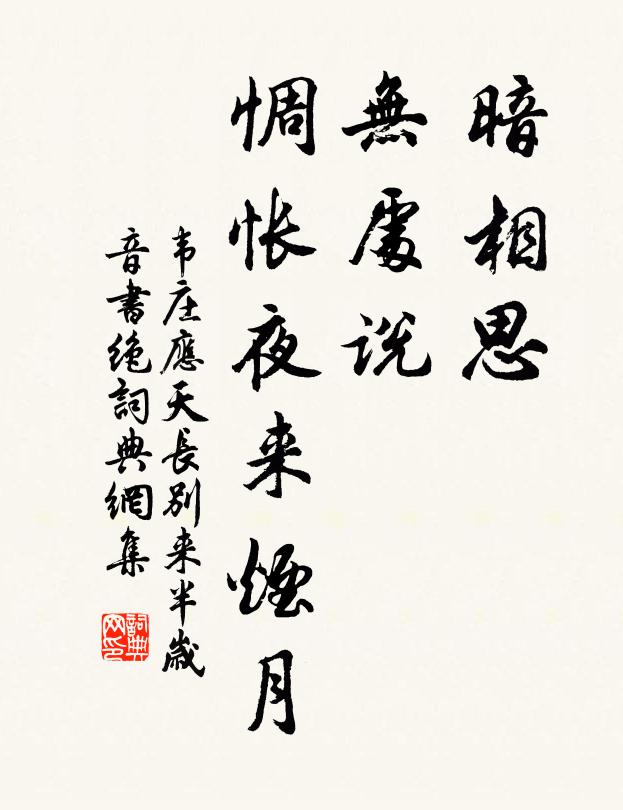 暗相思
無處説
惆怅夜来煙月
韦庄應天長别来半歳
音書絶詞典網集
詞典
网印